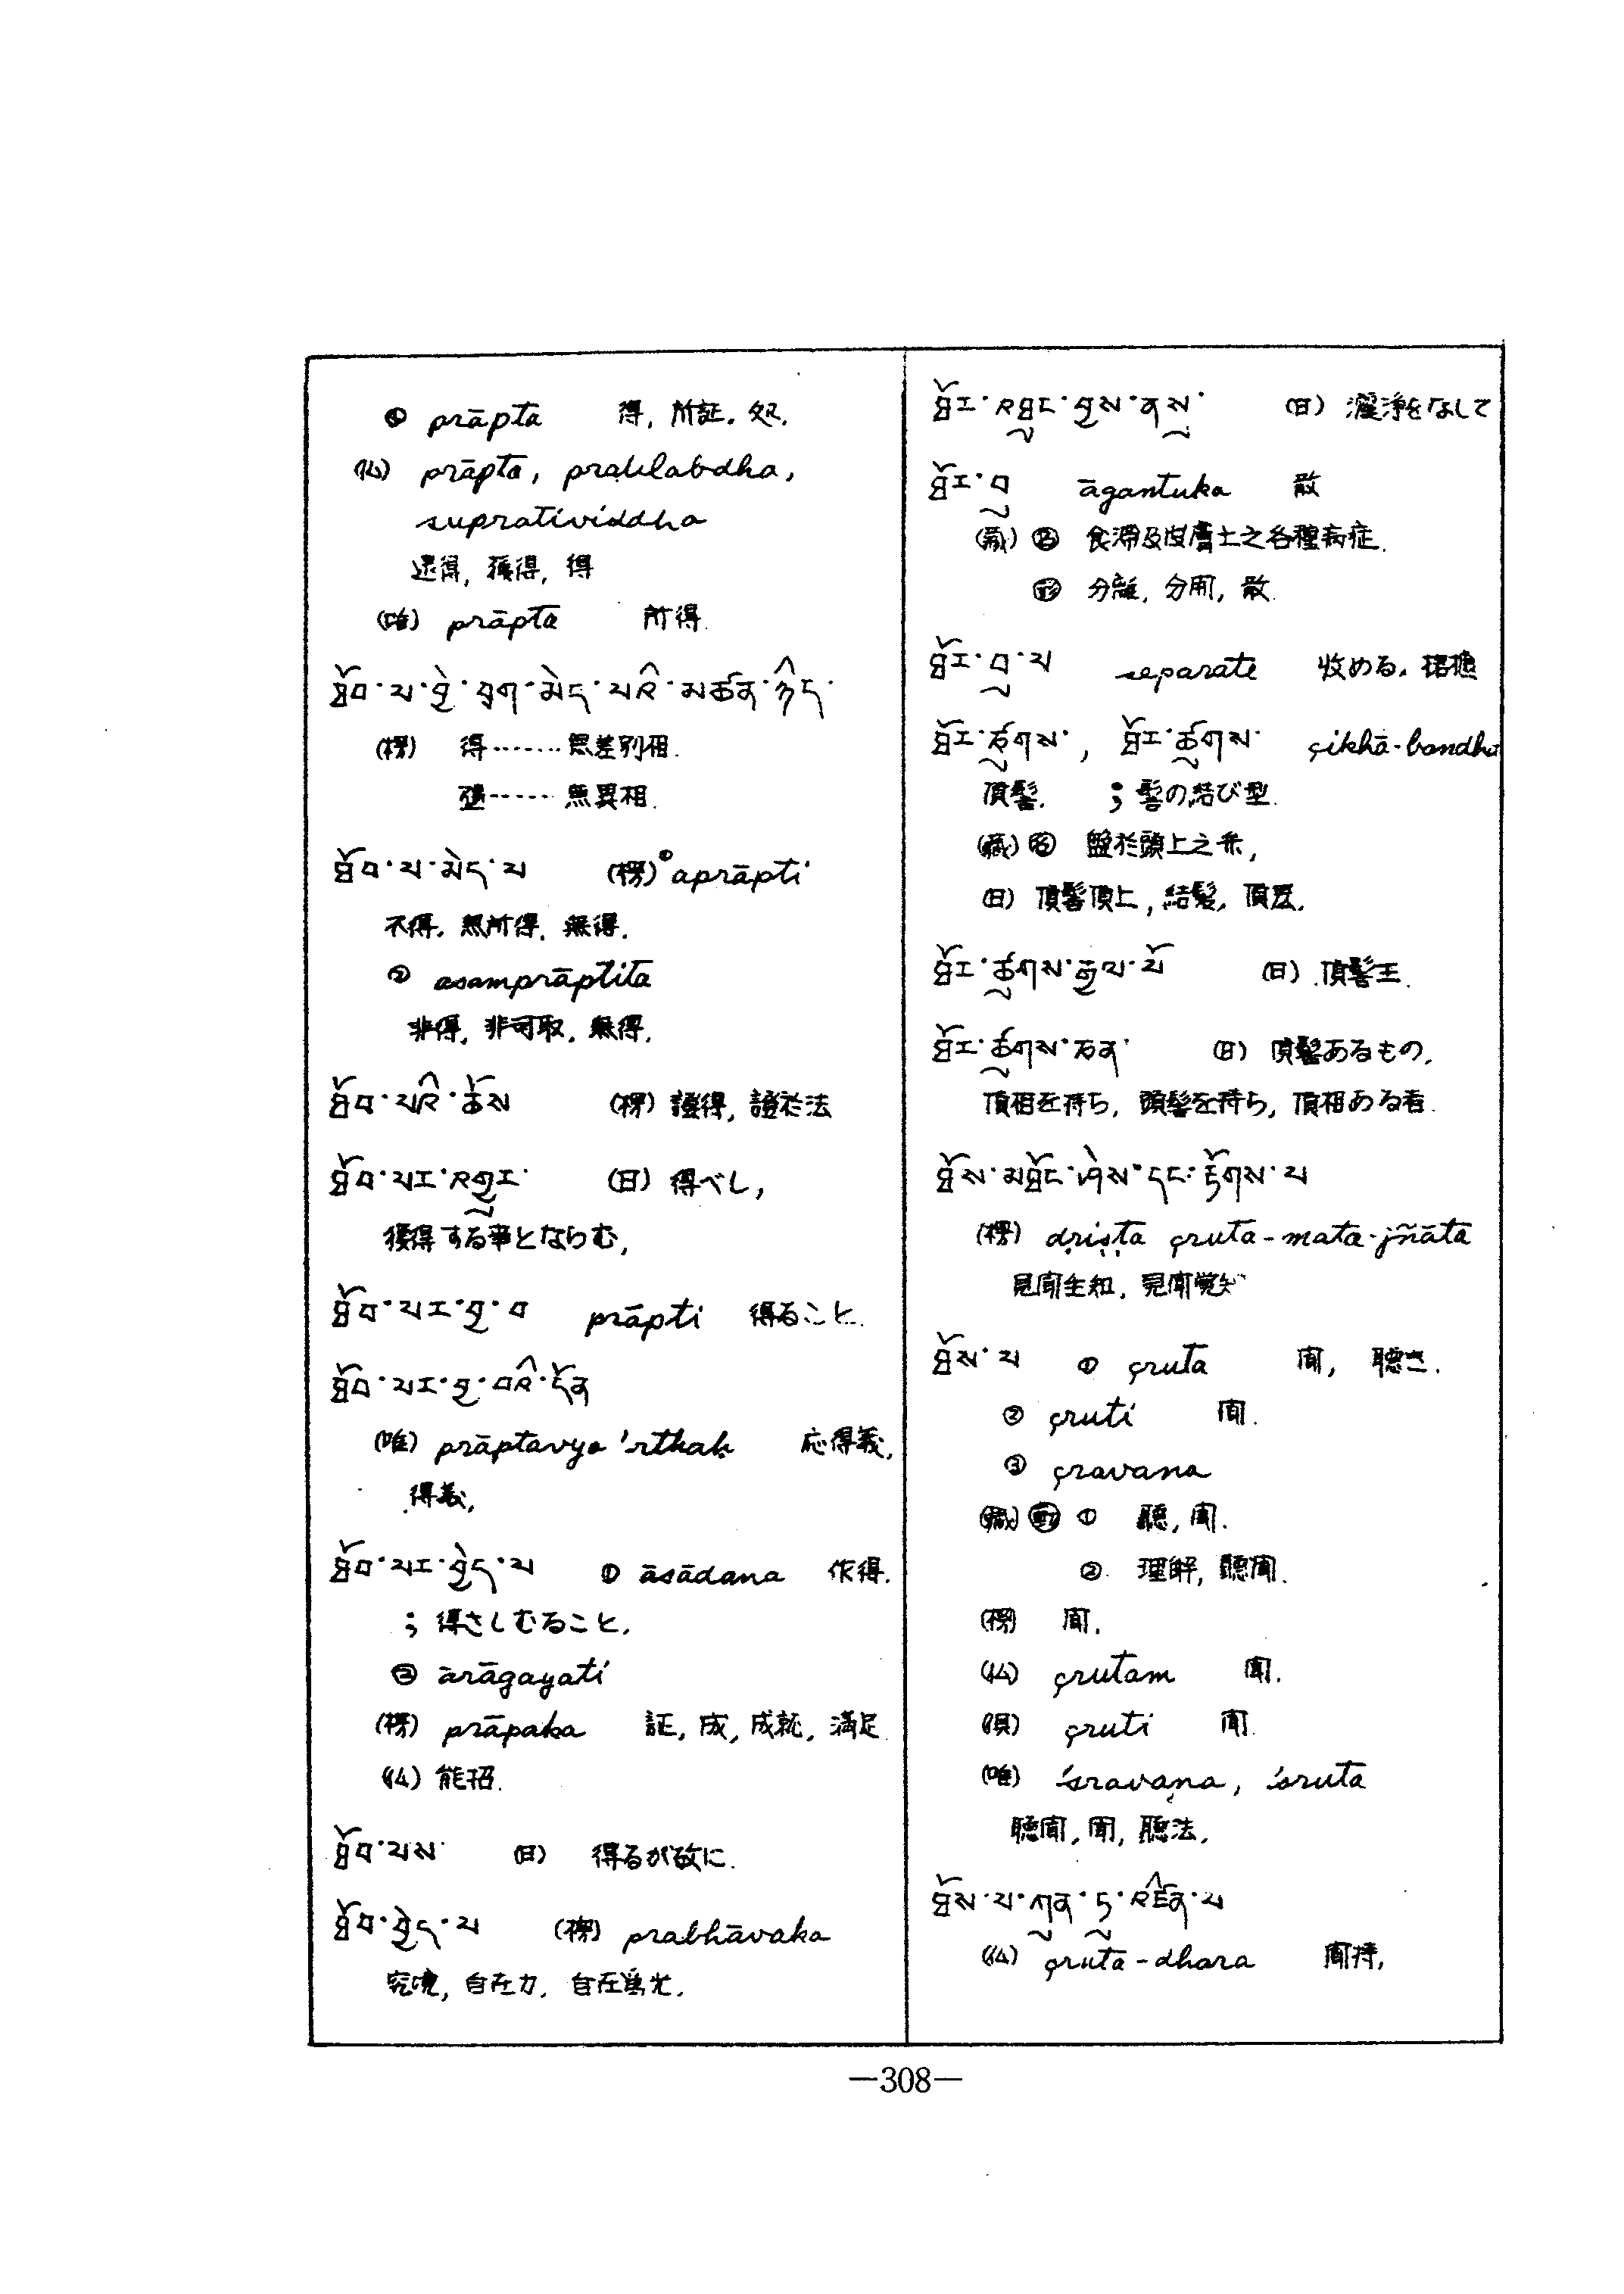 ④ prāpta 得, 所証. 処.
(仏) prāpta, pratilabdha,
supratividdha
逮得, 獲得, 得
(唯) prāpta 所得.
ཐོབ་པ་བྱེ་བྲག་མེད་པའི་མཚན་ཉིད་
(楞) 得……無差別相.
……無異相.
ཐོབ་པ་མེད་པ (楞)① aprāpti
不得. 無所得, 無得.
② asamprāptita
非得, 非可取. 無得.
ཐོབ་པའི་ཆོས (楞) 護得, 證於法
ཐོབ་པར་འགྱུར་ (日) 得べし,
獲得する事とならむ,
ཐོབ་པར་བྱ་བ prāpti 得ること.
ཐོབ་པར་བྱ་བའི་དོན
(唯) prāptavyo 'rthaḥ 応得義,
得義,
ཐོབ་པར་བྱེད་པ ① āsādana 作得.
; 得さしむること.
② ārāgayati
(楞) prāpaka 証, 成, 成就, 満足.
(仏) 能招.
ཐོབ་པས་ (日) 得るが故に.
ཐོབ་བྱེད་པ (楞) prabhāvaka
究境, 自在力, 自在
ཐོར་འཐུང་བྱས་ནས་ (日) 濯浄をなして
ཐོར་བུ āgantuka 散
(蔵) 名 食滞及皮膚上之各種病症.
形 分離, 分開, 散.
ཐོར་བུ་པ separate 收める.
ཐོར་ཅུགས་, ཐོར་ཚུགས་ çikhā-bandha
頂髻. ; 髻の結び型.
(蔵) 名 盤於頭上之
(日) 頂髻頂上, 結髪, 頂
ཐོར་ཚུགས་རྒྱལ་པོ (日) 頂髻王.
ཐོར་ཚུགས་ཅན་ (日) 頂髻あるもの,
頂相を持ち, 頭髻を持ち, 頂相ある者.
ཐོས་མཐོང་ཤེས་དང་རྟོགས་པ
(楞) dṛiṣṭa çruta-mata-jñāta
見聞生知, 見聞覚知
ཐོས་པ ① çruta 聞, 聴き.
② çruti 聞.
③ çravana
(蔵) 動 ① 聴, 聞.
② 理解, 聴聞.
(楞) 聞.
(仏) çrutam 聞.
(倶) çruti 聞.
(唯) śravaṇa, śruta
聴聞, 聞, 聴法.
ཐོས་པ་ཀུན་ཏུ་འཛིན་པ
(仏) çruta-dhara 聞持,
—308—